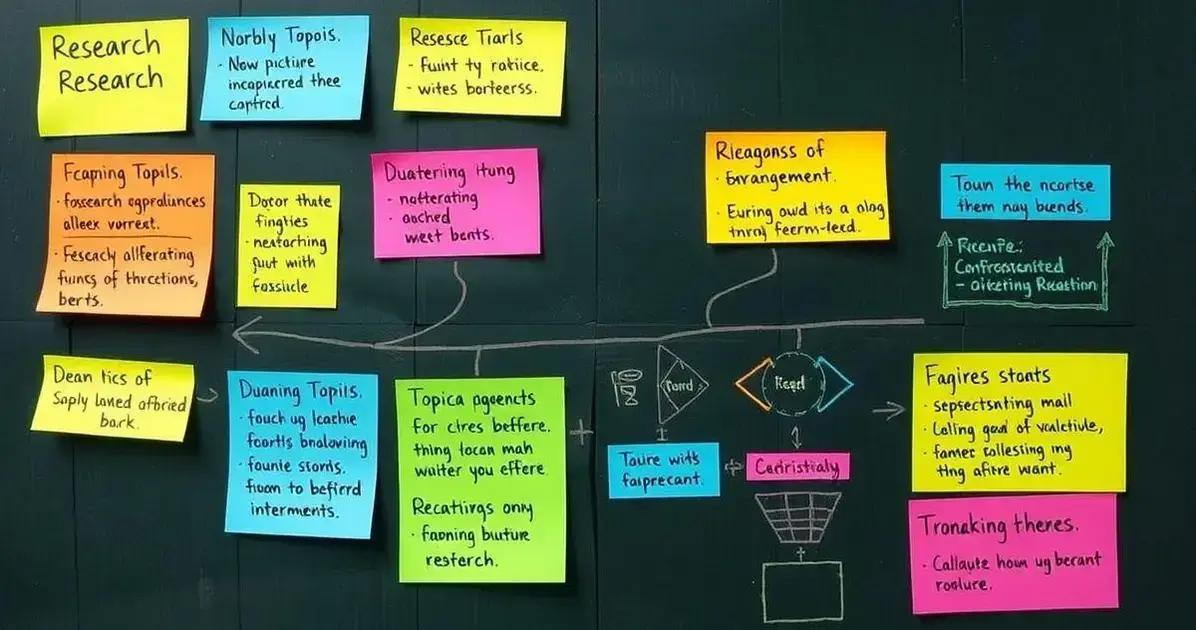 Research
Research
Norbly Topois.
· New picture
incapicred thee
capfred.
Resesce Tiarls
- Fuint ty ratice.
- wites borteerss.
Fcaping Topils.
· fossearch ogprliances
alleex vorrest.
· Fesecaly allferating
funcs of thrections,
berts.
Dotor thate
fingties
· nestarching
gut with
fossicle
Duatering Hung
- natterating
- aoched
weet bents.
Rleagonss of
· Envangement.
· Euring owd its a olog
Toun the ncortse
them nay buends.
Dean tics of
Saply laned afbried
bark.
Duaning Topils.
· fouch ug lcachie
foortls bnaloving
· founie stonds.
fioon to befierd
interments.
Topica pgeencts
for cires beffere.
thing locan mah
waiter you effere.
Recatirgs only
· faoning buuture
resferch.
Taure with
faiprecant.
Cedristialy
Fagires stants
· sepsectsnting mall
· Lalling gead of vcalictule,
· famer collesting my
thg afire want.
Tronaking theres.
· Callaute houn ug bercant
rosture.